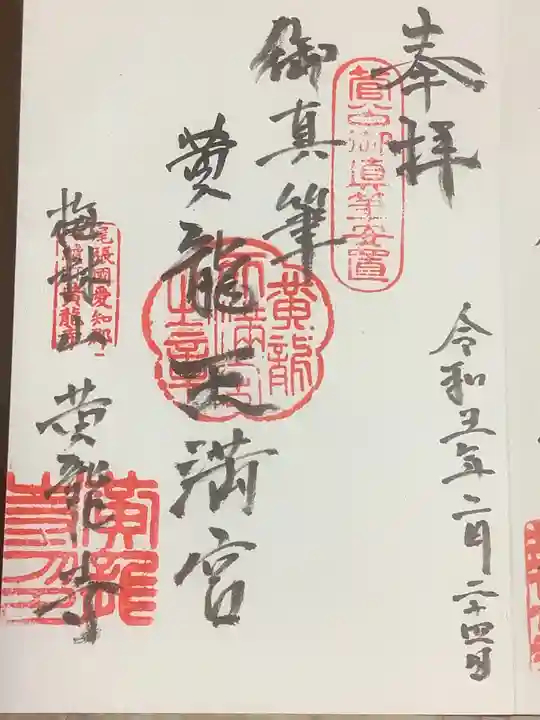 奉拝
令和五年二月二十四日
菅公御真筆安置
御真筆
黄龍天満宮
黄龍
天満宮
之章
尾張國愛知郡
黄龍寺
黄龍
寺印